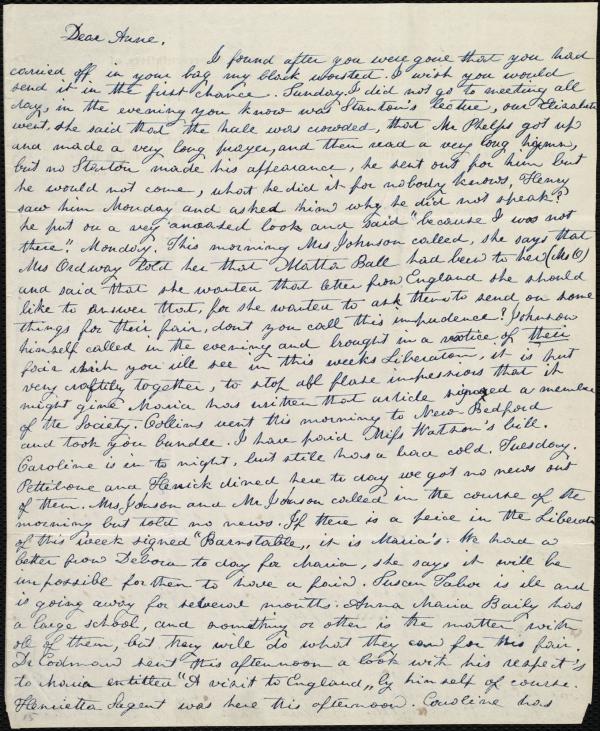 Dear Anne,
I found after you were gone that you had
carried off in your bag my black worsted. I wish you would
send it in the first chance. Sunday. I did not go to meeting all
day, in the evening you know was Stanton's lecture, our Elizabeth
went, she said that the hall was crowded, that Mr Phelps got up
and made a very long prayer, and then read a very long hymn,
but no Stanton made his appearance, he sent out for him but
he would not come, what he did it for nobody knows, Henry
saw him Monday and asked him why he did not speak?
he put on a very amased look and said "because I was not
there". Monday. This morning Mrs Johnson called, she says that
Mrs Ordway told her that Matta Ball had been to her (Mrs O)
and said that she wanted that letter from England she should
like to answer that, for she wanted to ask them to send on some
things for their fair, don't you call this impudence? Johnson
himself called in the evening and brought in a notice of their
fair which you will see in this weeks Liberator, it is put
very craftily together, to stop all flase impressions that it
might give Maria has written that article signed a member
of the Society. Collins went this morning to New Bedford
and took your bundle. I have paid Miss Watson's bill.
Caroline is in to night, but still has a bad cold. Tuesday.
Pettibone and Henick dined here to day we got no news out
of them. Mrs Jonson and Mr Jonson called in the course of the
morning but told no news. If there is a peice in the Liberator
of this week signed "Barnstable,, it is Maria's. We had a
letter from Debora to day for Maria, she says it will be
impossible for them to have a fair. Susan Tabor is ill and
is going away for several months. Anna Maria Baily has
a large school, and something or other is the matter with
all of them, but they will do what they can for this fair.
Dr Codman sent this afternoon a book with his respect's
to Maria entitled "A visit to England,, by himself of course.
Henrietta Sargent was here this afternoon. Caroline has
15